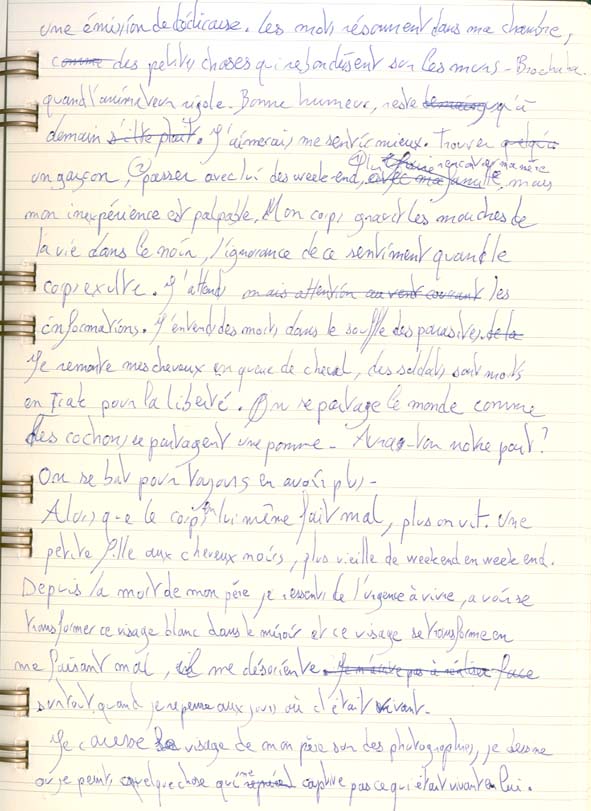 une émission de dédicace. Les mots résonnent dans ma chambre,
comme des petites choses qui rebondissent sur les murs - Brochita.
quand l'animateur rigole. Bonne humeur, reste qu'à
demain s'il te plait. J'aimerais me sentir mieux. Trouver
un garçon, passer avec lui des week-end, rencontrer ma mère avec ma famille, mais
mon inexpérience est palpable. Mon corps gravit les mouches de
la vie dans le noir, l'ignorance de ce sentiment quand le
corps exulte. J'attends mais attention au vent courant les
informations. J'entends des morts dans le souffle des parasites. de la
Je remonte mes cheveux en queue de cheval, des soldats sont morts
en Irak pour la liberté. On se partage le monde comme
des cochons se partagent une pomme - Aura-t-on notre part?
On se bat pour toujours en avoir plus -
Alors que le corps en lui même fait mal, plus on vit. Une
petite fille aux cheveux noirs, plus vieille de weekend en week end.
Depuis la mort de mon père je ressens de l'urgence à vivre, a voir se
transformer ce visage blanc dans le miroir et ce visage se transforme en
me faisant mal, il me désoriente. face
surtout quand je repense aux jours où c'était vivant.
Je caresse le visage de mon père sur des photographies, je dessine
ou je peins, quelque chose qui me captive pas ce qui était vivant en lui.